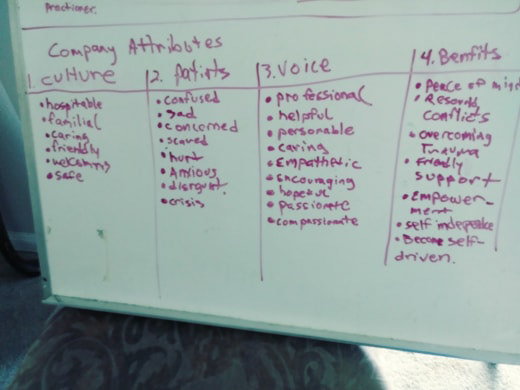 Practioner.
Company Attributes
1. Culture
• hospitable
• familial
• caring
• friendly
• welcoming
• safe
2. Patints
• confused
• Sad
• concerned
• scared
• hurt
• Anxious
• disrqut.
• crisis
3. Voice
• professional
• helpful
• personable
• caring
• Empathetic
• Encouraging
• hopeful
• passionate
• compassionate
4. Benfits
• Peace of mind
• Resolving
conflicts
• overcoming
Trauma
• friendly
support
• Empower-
ment
• self indepednce
• Become self-
driven.